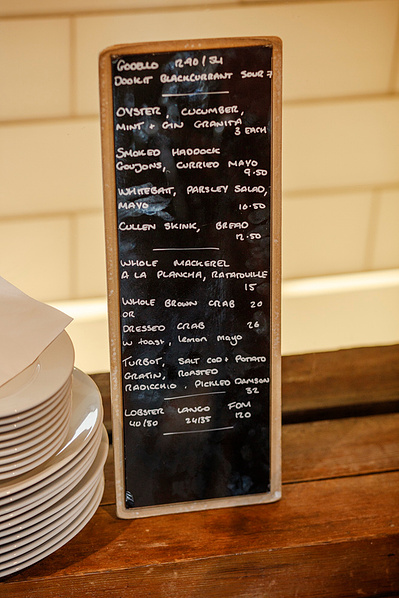 GODELLO 12.90/54
DOOKIT BLACKCURRANT SOUR 7
OYSTER, CUCUMBER,
MINT + GIN GRANITA
3 EACH
SMOKED HADDOCK
GOUJONS, CURRIED MAYO
9.50
WHITEBAIT, PARSLEY SALAD,
MAYO 10.50
CULLEN SKINK, BREAD
12.50
WHOLE MACKEREL
A LA PLANCHA, RATATOUILLE
15
WHOLE BROWN CRAB 20
OR
DRESSED CRAB 26
w toast, lemon mayo
TURBOT, SALT COD + POTATO
GRATIN, ROASTED
RADICCHIO, PICKLED DAMSON
32
LOBSTER LANGO FOM
40/80 24/35 120